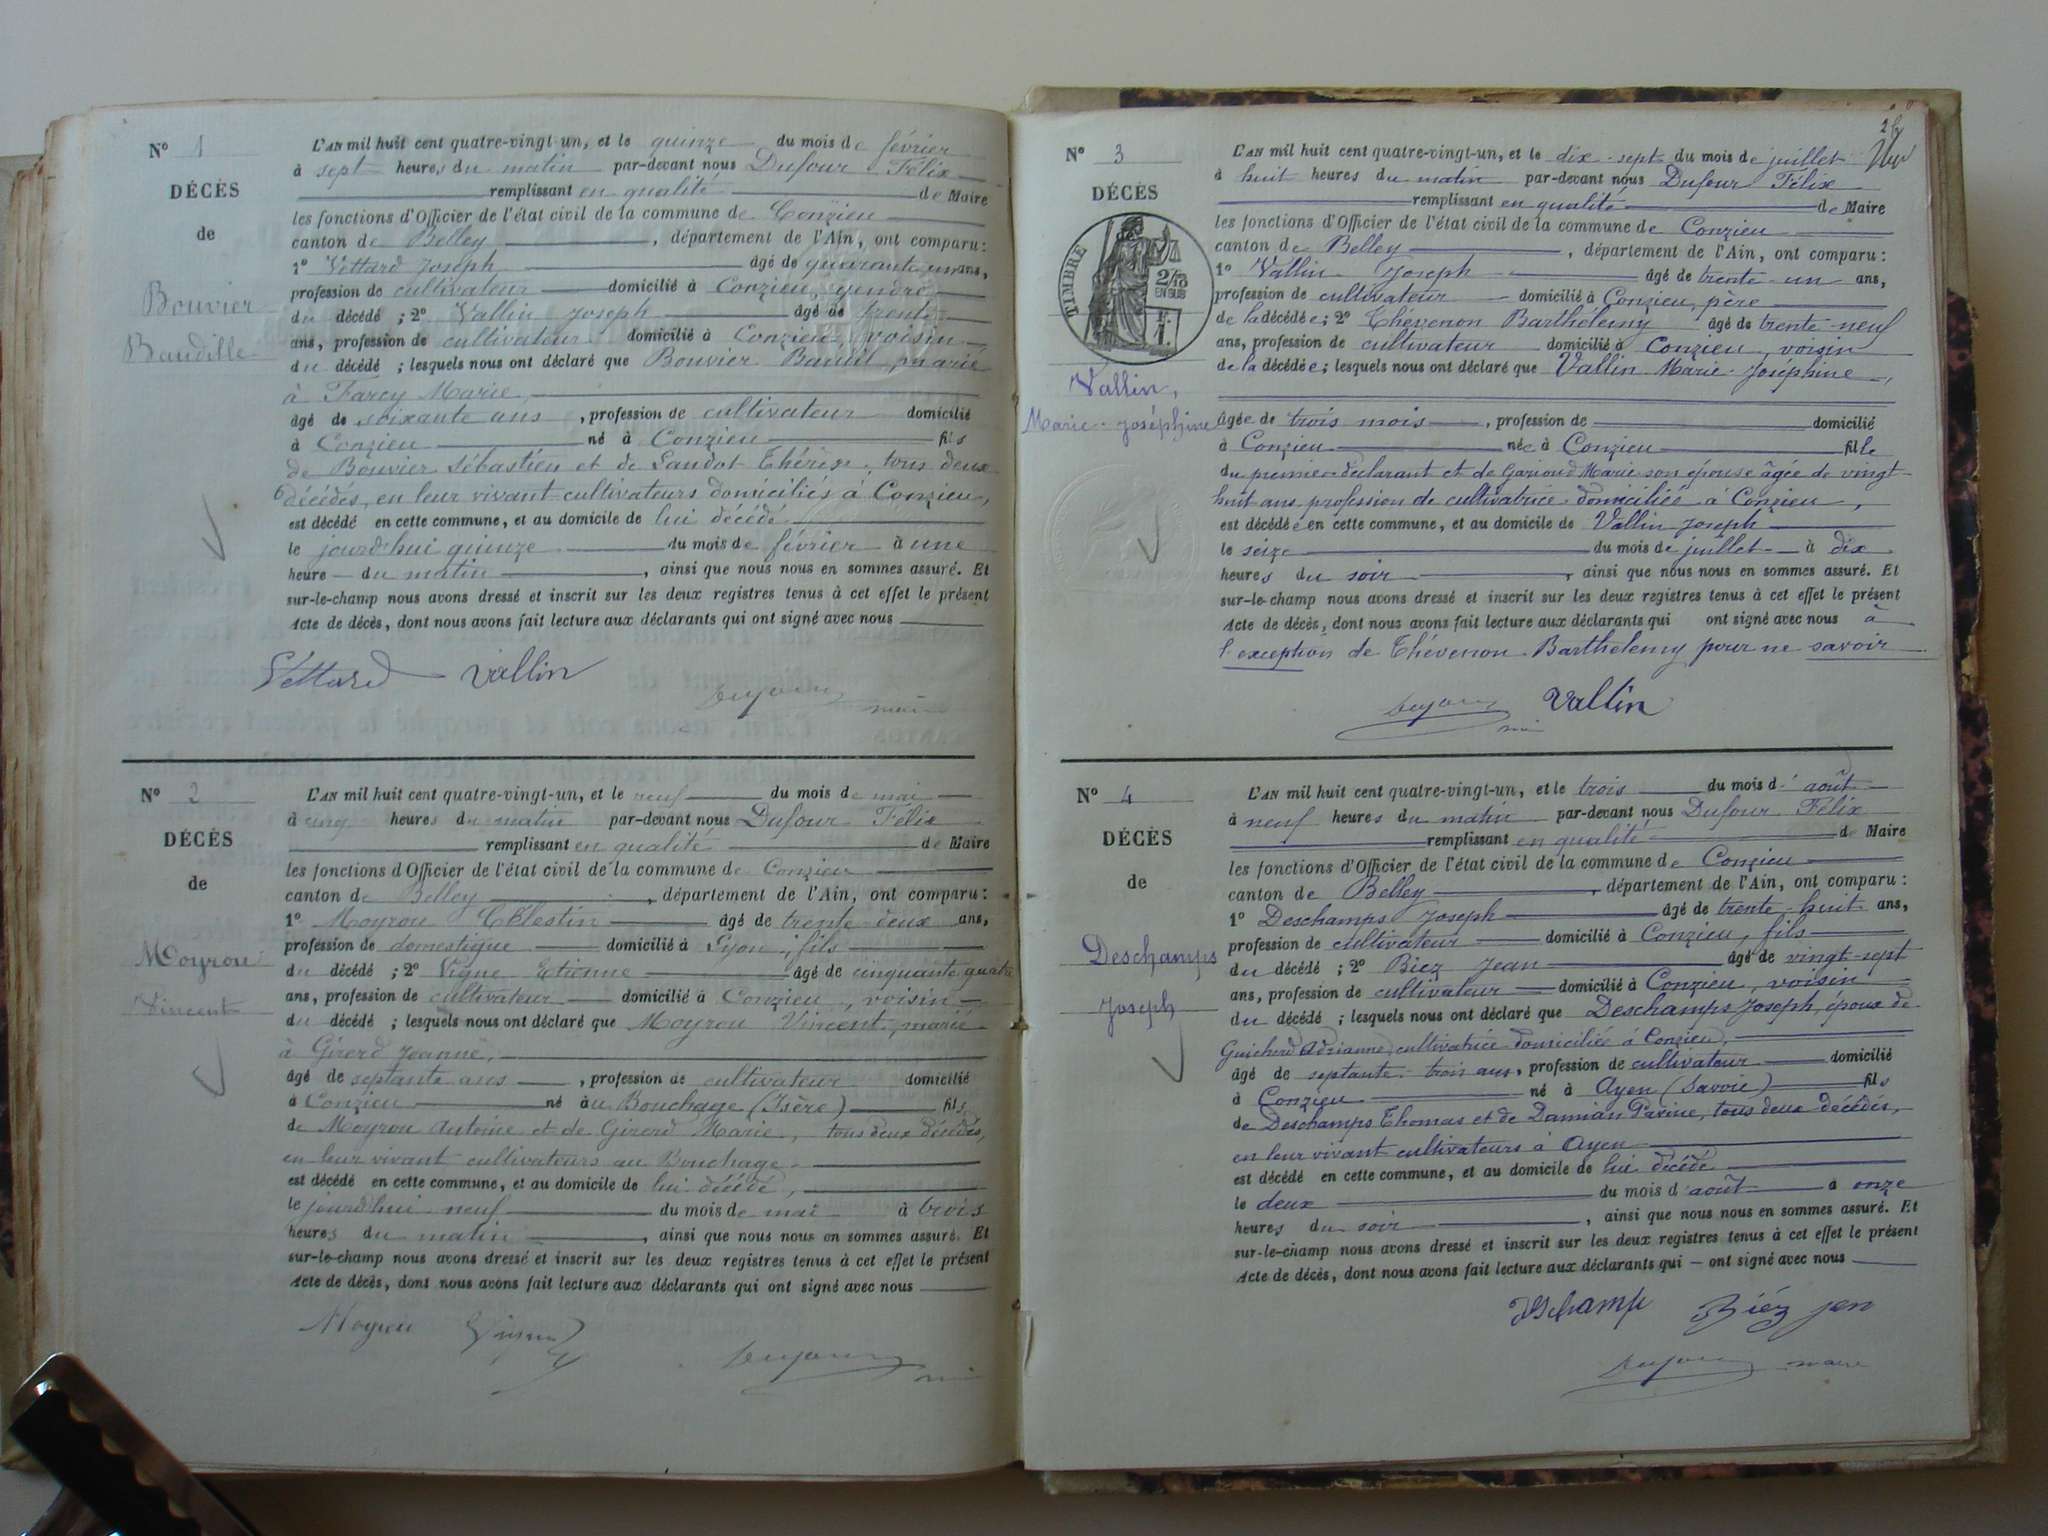 N° 1
DÉCÈS
de
Bouvier
Baudille
L'AN mil huit cent quatre-vingt-un, et le quinze du mois de février
à sept heures du matin par-devant nous Dufour Félix
remplissant en qualité de Maire
les fonctions d'Officier de l'état civil de la commune de Conzieu
canton de Belley, département de l'Ain, ont comparu :
1° Vettard Joseph âgé de quarante un ans,
profession de cultivateur domicilié à Conzieu, gendre
du décédé ; 2° Vallin Joseph âgé de trente
ans, profession de cultivateur domicilié à Conzieu, voisin
du décédé ; lesquels nous ont déclaré que Bouvier Baudil, marié
à Farcy Marie,
âgé de soixante ans, profession de cultivateur domicilié
à Conzieu né à Conzieu fils
de Bouvier Sébastien et de Landot Thérèse, tous deux
décédés, en leur vivant cultivateurs domiciliés à Conzieu,
est décédé en cette commune, et au domicile de lui décédé
le jourd'hui quinze du mois de février à une
heure du matin, ainsi que nous nous en sommes assuré. Et
sur-le-champ nous avons dressé et inscrit sur les deux registres tenus à cet effet le présent
Acte de décès, dont nous avons fait lecture aux déclarants qui ont signé avec nous
Vettard Vallin
Dufour
maire
N° 2
DÉCÈS
de
Moyrou
Vincent
L'AN mil huit cent quatre-vingt-un, et le neuf du mois de mai
à cinq heures du matin par-devant nous Dufour Félix
remplissant en qualité de Maire
les fonctions d'Officier de l'état civil de la commune de Conzieu
canton de Belley, département de l'Ain, ont comparu :
1° Moyrou Célestin âgé de trente deux ans,
profession de domestique domicilié à Lyon, fils
du décédé ; 2° Vigne Etienne âgé de cinquante quatre
ans, profession de cultivateur domicilié à Conzieu, voisin
du décédé ; lesquels nous ont déclaré que Moyrou Vincent, marié
à Girerd Jeanne,
âgé de septante ans, profession de cultivateur domicilié
à Conzieu né au Bouchage (Isère) fils
de Moyrou Antoine et de Girerd Marie, tous deux décédés,
en leur vivant cultivateurs au Bouchage
est décédé en cette commune, et au domicile de lui décédé,
le jourd'hui neuf du mois de mai à trois
heures du matin, ainsi que nous nous en sommes assuré. Et
sur-le-champ nous avons dressé et inscrit sur les deux registres tenus à cet effet le présent
Acte de décès, dont nous avons fait lecture aux déclarants qui ont signé avec nous
Moyrou
Dufour
N° 3
DÉCÈS
TIMBRE
2/10
EN SUS
Vallin,
Marie-Joséphine
L'AN mil huit cent quatre-vingt-un, et le dix-sept du mois de juillet
à huit heures du matin par-devant nous Dufour Félix
remplissant en qualité de Maire
les fonctions d'Officier de l'état civil de la commune de Conzieu
canton de Belley, département de l'Ain, ont comparu :
1° Vallin Joseph âgé de trente-un ans,
profession de cultivateur domicilié à Conzieu, père
de la décédée ; 2° Thévenon Barthélemy âgé de trente-neuf
ans, profession de cultivateur domicilié à Conzieu, voisin
de la décédée ; lesquels nous ont déclaré que Vallin Marie-Joséphine,
âgée de trois mois, profession de domicilié
à Conzieu née à Conzieu fille
du premier déclarant et de Gariond Marie son épouse âgée de vingt-
huit ans profession de cultivatrice domiciliée à Conzieu,
est décédée en cette commune, et au domicile de Vallin Joseph
le seize du mois de juillet à dix
heures du soir, ainsi que nous nous en sommes assuré. Et
sur-le-champ nous avons dressé et inscrit sur les deux registres tenus à cet effet le présent
Acte de décès, dont nous avons fait lecture aux déclarants qui ont signé avec nous à
l'exception de Thévenon Barthélemy pour ne savoir
Dufour Vallin
N° 4
DÉCÈS
de
Deschamps
Joseph
L'AN mil huit cent quatre-vingt-un, et le trois du mois d'août
à neuf heures du matin par-devant nous Dufour Félix
remplissant en qualité de Maire
les fonctions d'Officier de l'état civil de la commune de Conzieu
canton de Belley, département de l'Ain, ont comparu :
1° Deschamps Joseph âgé de trente-huit ans,
profession de cultivateur domicilié à Conzieu, fils
du décédé ; 2° Biez Jean âgé de vingt-sept
ans, profession de cultivateur domicilié à Conzieu, voisin
du décédé ; lesquels nous ont déclaré que Deschamps Joseph, époux de
Guicherd Adrianne, cultivatrice domiciliée à Conzieu,
âgé de septante-trois ans, profession de cultivateur domicilié
à Conzieu né à Ayen (Savoie) fils
de Deschamps Thomas et de Damian Pavine, tous deux décédés,
en leur vivant cultivateurs à Ayen
est décédé en cette commune, et au domicile de lui décédé
le deux du mois d'août à onze
heures du soir, ainsi que nous nous en sommes assuré. Et
sur-le-champ nous avons dressé et inscrit sur les deux registres tenus à cet effet le présent
Acte de décès, dont nous avons fait lecture aux déclarants qui ont signé avec nous
Biéz jen
Dufour maire